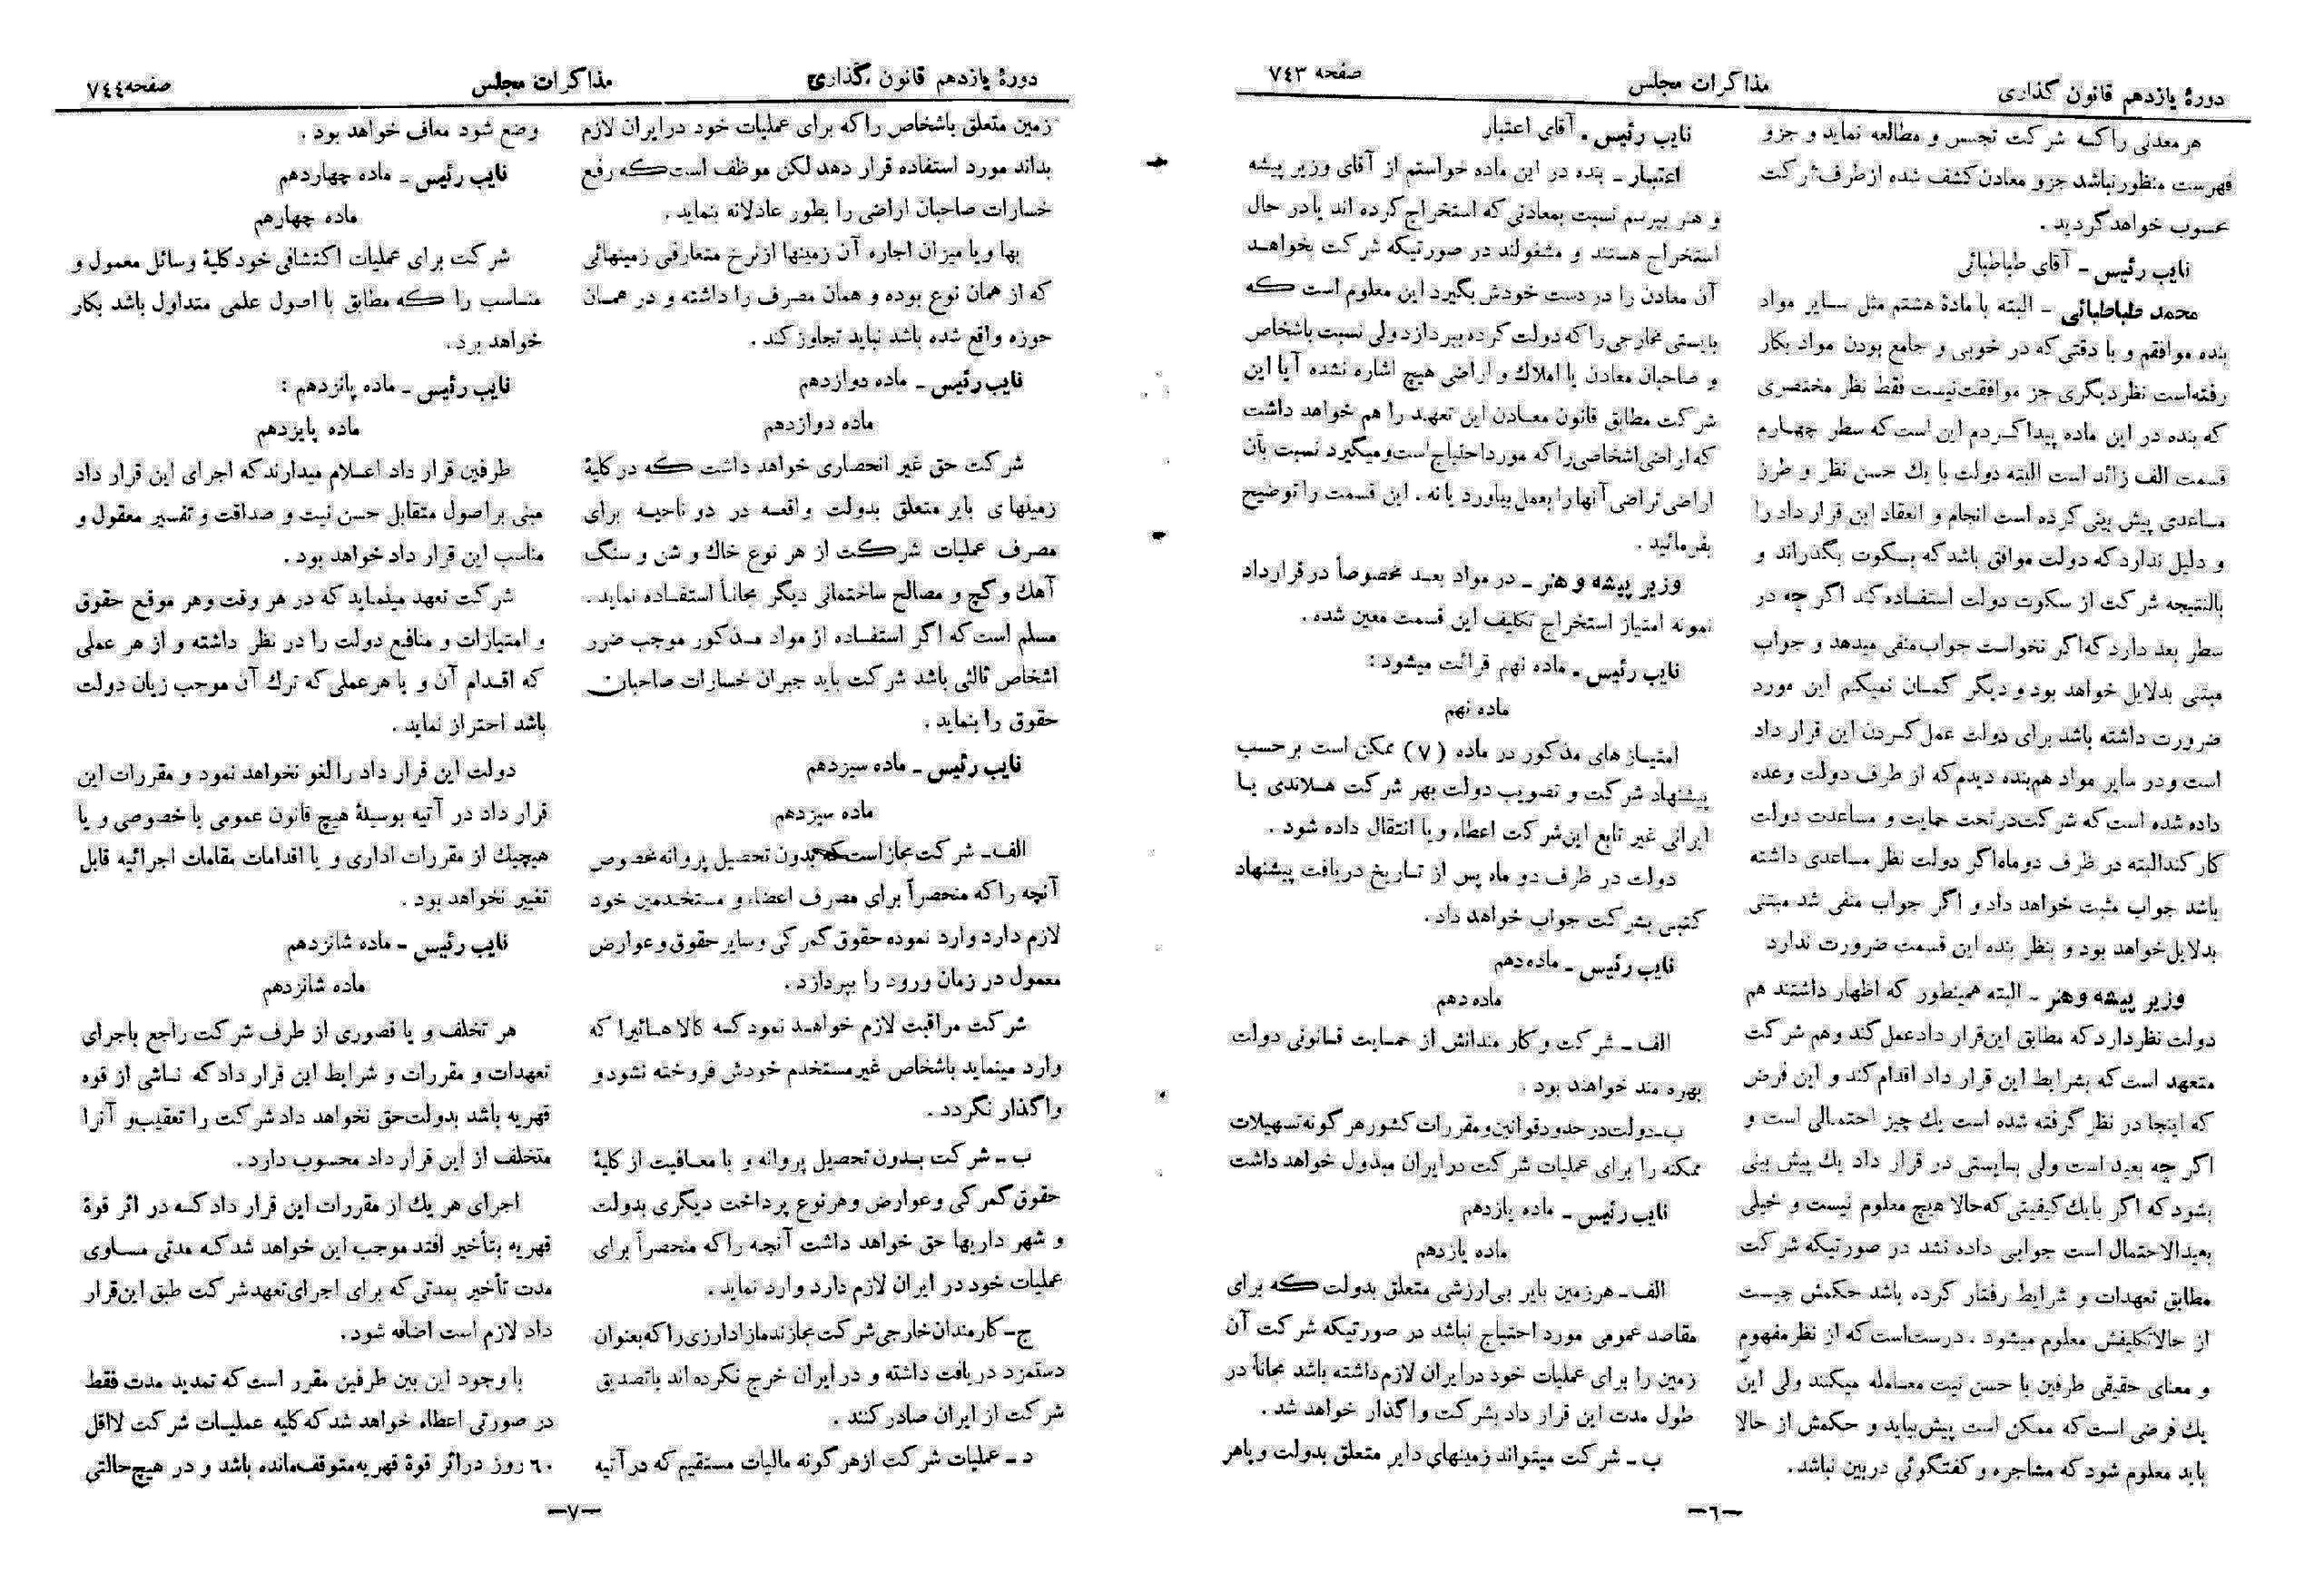 دورهٔ یازدهم قانون گذاری
مذاکرات مجلس
صفحه ۷٤۳
هر معدنی را کسه شرکت تجسس و مطالعه نماید و جزو
فهرست منظور نباشد جزو معادن کشف شده از طرف شرکت
محسوب خواهد گردید .
نایب رئیس ـ آقای طباطبائی
محمد طباطبائی ـ البته با مادهٔ هشتم مثل سایر مواد
بنده موافقم و با دقتی که در خوبی و جامع بودن مواد بکار
رفته است نظر دیگری جز موافقت نیست فقط نظر مختصری
که بنده در این ماده پیدا کردم این است که سطر چهارم
قسمت الف زائد است البته دولت با یك حسن نظر و طرز
مساعدی پیش بینی کرده است انجام و انعقاد این قرار داد را
و دلیل ندارد که دولت موافق باشد که بسکوت بگذراند و
بالنتیجه شرکت از سکوت دولت استفاده کند اگر چه در
سطر بعد دارد که اگر نخواست جواب منفی میدهد و جواب
مبتنی بدلایل خواهد بود و دیگر گمان نمیکنم این مورد
ضرورت داشته باشد برای دولت عمل کردن این قرار داد
است و در سایر مواد هم بنده دیدم که از طرف دولت وعده
داده شده است که شرکت در تحت حمایت و مساعدت دولت
کار کند البته در ظرف دو ماه اگر دولت نظر مساعدی داشته
باشد جواب مثبت خواهد داد و اگر جواب منفی شد مبتنی
بدلایل خواهد بود و بنظر بنده این قسمت ضرورت ندارد
وزیر پیشه و هنر ـ البته همینطور که اظهار داشتند هم
دولت نظر دارد که مطابق این قرار داد عمل کند و هم شرکت
متعهد است که بشرایط این قرار داد اقدام کند و این فرض
که اینجا در نظر گرفته شده است یك چیز احتمالی است و
اگر چه بعید است ولی بایستی در قرار داد یك پیش بینی
بشود که اگر با یك کیفیتی که حالا هیچ معلوم نیست و خیلی
بعید الاحتمال است جوابی داده نشد در صورتیکه شرکت
مطابق تعهدات و شرایط رفتار کرده باشد حکمش چیست
از حالا تکلیفش معلوم میشود . درست است که از نظر مفهوم
و معنای حقیقی طرفین با حسن نیت معامله میکنند ولی این
یك فرضی است که ممکن است پیش بیاید و حکمش از حالا
باید معلوم شود که مشاجره و گفتگوئی در بین نباشد .
نایب رئیس . آقای اعتبار
اعتبار ـ بنده در این ماده خواستم از آقای وزیر پیشه
و هنر بپرسم نسبت بمعادنی که استخراج کرده اند یا در حال
استخراج هستند و مشغولند در صورتیکه شرکت بخواهد
آن معادن را در دست خودش بگیرد این معلوم است که
بایستی مخارجی را که دولت کرده بپردازد ولی نسبت باشخاص
و صاحبان معادن یا املاك و اراضی هیچ اشاره نشده آیا این
شرکت مطابق قانون معادن این تعهد را هم خواهد داشت
که اراضی اشخاصی را که مورد احتیاج است و میگیرد نسبت بآن
اراضی تراضی آنها را بعمل بیاورد یا نه . این قسمت را توضیح
بفرمائید .
وزیر پیشه و هنر ـ در مواد بعد مخصوصاً در قرارداد
نمونه امتیاز استخراج تکلیف این قسمت معین شده .
نایب رئیس ـ ماده نهم قرائت میشود :
ماده نهم
امتیاز های مذکور در ماده (۷) ممکن است بر حسب
پیشنهاد شرکت و تصویب دولت بهر شرکت هلاندی یا
ایرانی غیر تابع این شرکت اعطاء و یا انتقال داده شود .
دولت در ظرف دو ماه پس از تاریخ دریافت پیشنهاد
کتبی بشرکت جواب خواهد داد .
نایب رئیس ـ ماده دهم
ماده دهم
الف ـ شرکت و کارمندانش از حمایت قانونی دولت
بهره مند خواهند بود .
ب ـ دولت در حدود قوانین و مقررات کشور هر گونه تسهیلات
ممکنه را برای عملیات شرکت در ایران مبذول خواهد داشت
نایب رئیس ـ ماده یازدهم
ماده یازدهم
الف ـ هر زمین بایر بی ارزشی متعلق بدولت که برای
مقاصد عمومی مورد احتیاج نباشد در صورتیکه شرکت آن
زمین را برای عملیات خود در ایران لازم داشته باشد مجاناً در
طول مدت این قرار داد بشرکت واگذار خواهد شد .
ب ـ شرکت میتواند زمینهای دایر متعلق بدولت و یا هر
ـ٦ـ
دورهٔ یازدهم قانون گذاری
مذاکرات مجلس
صفحه ۷٤٤
زمین متعلق باشخاص را که برای عملیات خود در ایران لازم
بداند مورد استفاده قرار دهد لکن موظف است که رفع
خسارات صاحبان اراضی را بطور عادلانه بنماید .
بها و یا میزان اجاره آن زمینها از نرخ متعارفی زمینهائی
که از همان نوع بوده و همان مصرف را داشته و در همان
حوزه واقع شده باشد نباید تجاوز کند .
نایب رئیس ـ ماده دوازدهم
ماده دوازدهم
شرکت حق غیر انحصاری خواهد داشت که در کلیهٔ
زمینهای بایر متعلق بدولت واقعه در دو ناحیه برای
مصرف عملیات شرکت از هر نوع خاك و شن و سنگ
آهك و گچ و مصالح ساختمانی دیگر مجاناً استفاده نماید .
مسلم است که اگر استفاده از مواد مذکور موجب ضرر
اشخاص ثالثی باشد شرکت باید جبران خسارات صاحبان
حقوق را بنماید .
نایب رئیس ـ ماده سیزدهم
ماده سیزدهم
الف ـ شرکت مجاز است که بدون تحصیل پروانه مخصوص
آنچه را که منحصراً برای مصرف اعضاء و مستخدمین خود
لازم دارد وارد نموده حقوق گمرکی و سایر حقوق و عوارض
معمول در زمان ورود را بپردازد .
شرکت مراقبت لازم خواهد نمود که کالاهائیرا که
وارد مینماید باشخاص غیر مستخدم خودش فروخته نشود و
واگذار نگردد .
ب ـ شرکت بدون تحصیل پروانه و با معافیت از کلیهٔ
حقوق گمرکی و عوارض و هر نوع پرداخت دیگری بدولت
و شهر داریها حق خواهد داشت آنچه را که منحصراً برای
عملیات خود در ایران لازم دارد وارد نماید .
ج ـ کارمندان خارجی شرکت مجازند مازاد ارزی را که بعنوان
دستمزد دریافت داشته و در ایران خرج نکرده اند با تصدیق
شرکت از ایران صادر کنند .
د ـ عملیات شرکت از هر گونه مالیات مستقیم که در آتیه
وضع شود معاف خواهد بود .
نایب رئیس ـ ماده چهاردهم
ماده چهارهم
شرکت برای عملیات اکتشافی خود کلیهٔ وسائل معمول و
مناسب را که مطابق با اصول علمی متداول باشد بکار
خواهد برد .
نایب رئیس ـ ماده پانزدهم :
ماده پایزدهم
طرفین قرار داد اعلام میدارند که اجرای این قرار داد
مبنی بر اصول متقابل حسن نیت و صداقت و تفسیر معقول و
مناسب این قرار داد خواهد بود .
شرکت تعهد مینماید که در هر وقت و هر موقع حقوق
و امتیازات و منافع دولت را در نظر داشته و از هر عملی
که اقدام آن و یا هر عملی که ترك آن موجب زیان دولت
باشد احتراز نماید .
دولت این قرار داد را لغو نخواهد نمود و مقررات این
قرار داد در آتیه بوسیلهٔ هیچ قانون عمومی یا خصوصی و یا
هیچیك از مقررات اداری و یا اقدامات مقامات اجرائیه قابل
تغییر نخواهد بود .
نایب رئیس ـ ماده شانزدهم
ماده شانزدهم
هر تخلف و یا قصوری از طرف شرکت راجع باجرای
تعهدات و مقررات و شرایط این قرار داد که ناشی از قوه
قهریه باشد بدولت حق نخواهد داد شرکت را تعقیب و آنرا
متخلف از این قرار داد محسوب دارد .
اجرای هر یك از مقررات این قرار داد کسه در اثر قوهٔ
قهریه بتأخیر افتد موجب این خواهد شد که مدتی مساوی
مدت تأخیر بمدتی که برای اجرای تعهد شرکت طبق این قرار
داد لازم است اضافه شود .
با وجود این بین طرفین مقرر است که تمدید مدت فقط
در صورتی اعطاء خواهد شد که کلیه عملیات شرکت لااقل
٦۰ روز در اثر قوهٔ قهریه متوقف مانده باشد و در هیچ حالتی
ـ۷ـ